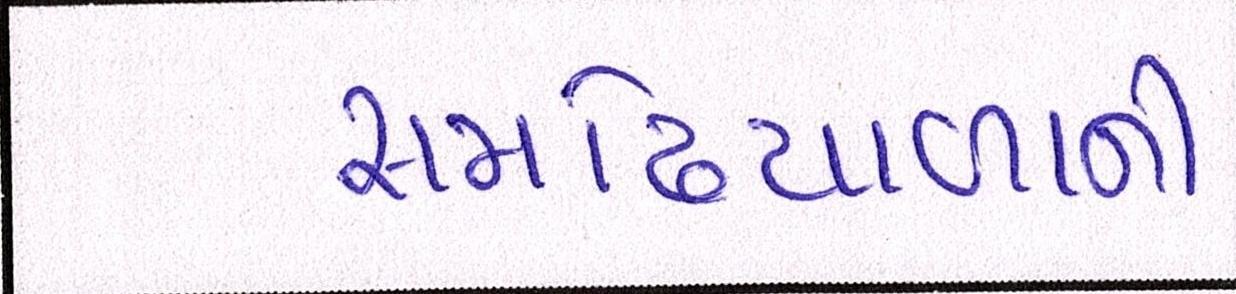 સમઢિયાળાની